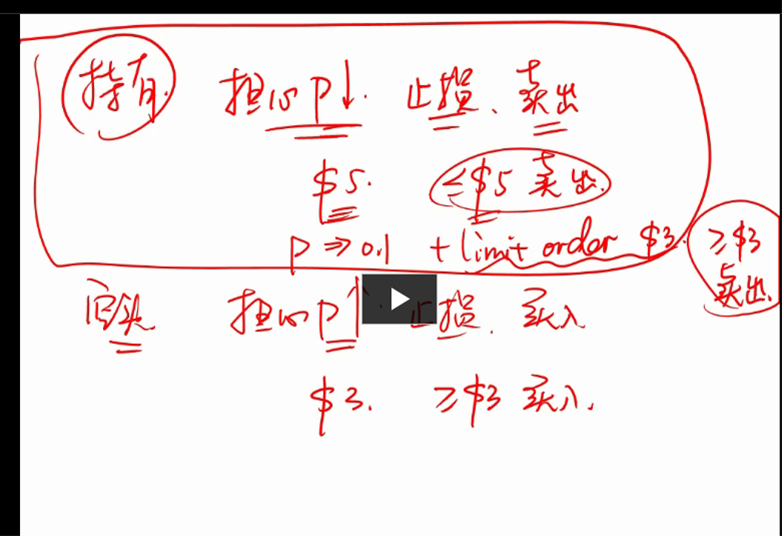 持有 担心P↓. 止损、卖出
$5. ≤$5 卖出.
P ⇒ 0.1 + limit order $3. ≥$3 卖出.
空头 担心P↑ 止损、买入
$3. ≥$3 买入.